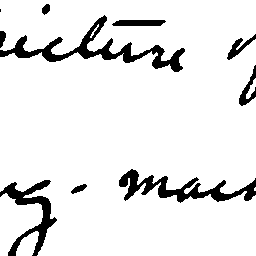 picture of
ng - mach